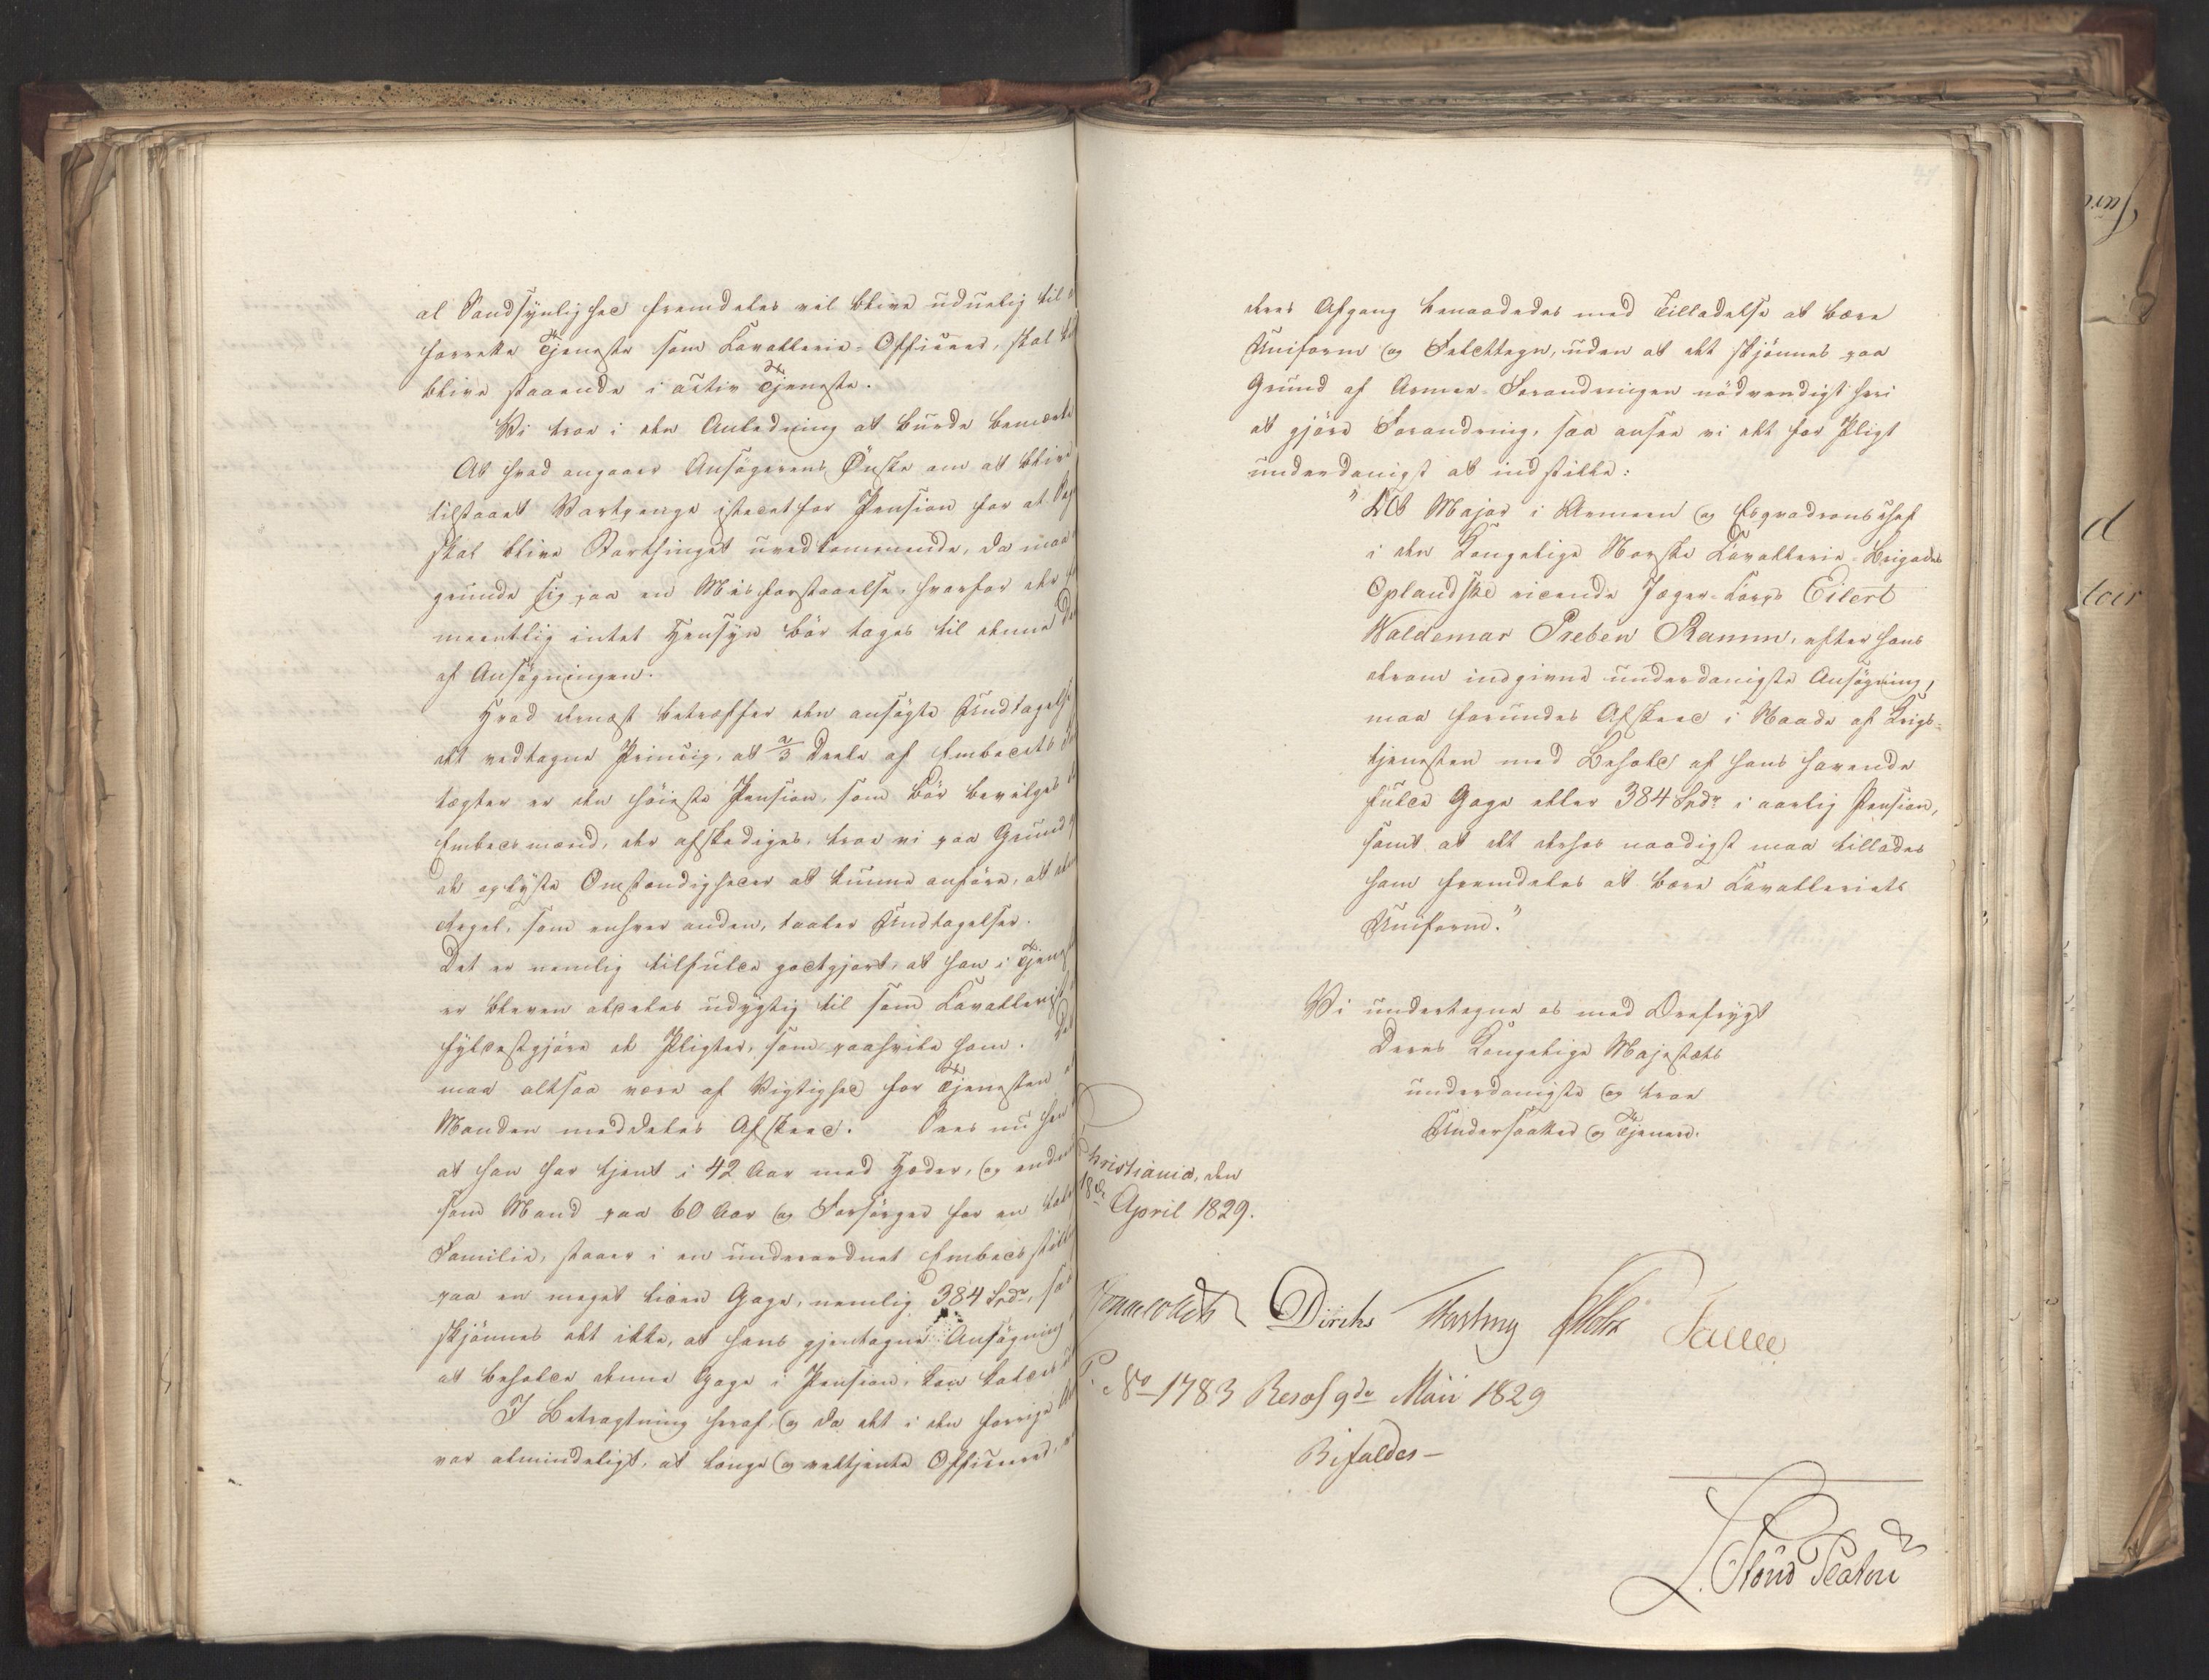 al Sandsynlighed fremdeles vil blive uduelig til
forrette Tjeneste som Cavallerie-Officeer, skal
blive staaende i activ Tjeneste.
Vi troe i den Anledning at burde bemærke
At hvad angaaer Ansøgerens Ønske om at blive
tilstaaet Vartpenge istedetfor Pension for at
skal blive Storthinget uvedkommende, da maa
grunde sig paa en Misforstaaelse, hvorfor der
meentlig intet Hensyn bør tages til denne
af Ansøgningen.
Hvad dernæst betræffer den ansøgte Undtagelse
det vedtagne Princip, at 2/3 Deele af Embedets
tægter er den høieste Pension, som bør bevilges
Embedsmænd, der afskediges, troe vi paa Grund
de oplyste Omstændigheder at kunne anføre, at
Regel, som enhver anden, taaler Undtagelser.
Det er nemlig tilfulde godtgjort, at han i
er bleven aldeles udygtig til som Cavallerist
fyldestgjøre de Pligter, som paahvile ham.
maa altsaa være af Vigtighed for Tjenesten
Manden meddeles Afskeed. Sees nu hen
at han har tjent i 42 Aar med Hæder, og endnu
som Mand paa 60 Aar og Forsørger for en
Familie, staaer i en underordnet Embeds
paa en meget liden Gage, nemlig 384 Spdr,
skjønnes det ikke, at hans gjentagne Ansøgning
at beholde denne Gage i Pension, kan kaldes
I Betragtning heraf, og da det i den forrige
var almindeligt, at længe og veltjente Officierer,
deres Afgang benaadedes med Tilladelse at bære
Uniform og Felttegn, uden at det skjønnes paa
Grund af Armee-Forandringen nødvendigt heri
at gjøre Forandring, saa ansee vi det for Pligt
underdanigst at indstille:
"At Major i Armeen og Esqvadronschef
i den Kongelige Norske Cavallerie-Brigades
Oplandske ridende Jæger-Corps Eilert
Waldemar Preben Ramm, efter hans
derom indgivne underdanigste Ansøgning,
maa forundes Afskeed i Naade af Krigs-
tjenesten med Behold af hans havende
fulde Gage eller 384 Spdr i aarlig Pension,
samt at det derhos naadigst maa tillades
ham fremdeles at bære Cavalleriets
Uniform."
Vi undertegne os med Ærefrygt
Deres Kongelige Majestæts
underdanigste og troe
Undersaatter og Tjenere.
Christiania, den
18de April 1829.
Diriks Fasting Holst
P. No 1783 Resol 9de Maii 1829
Bifaldes-